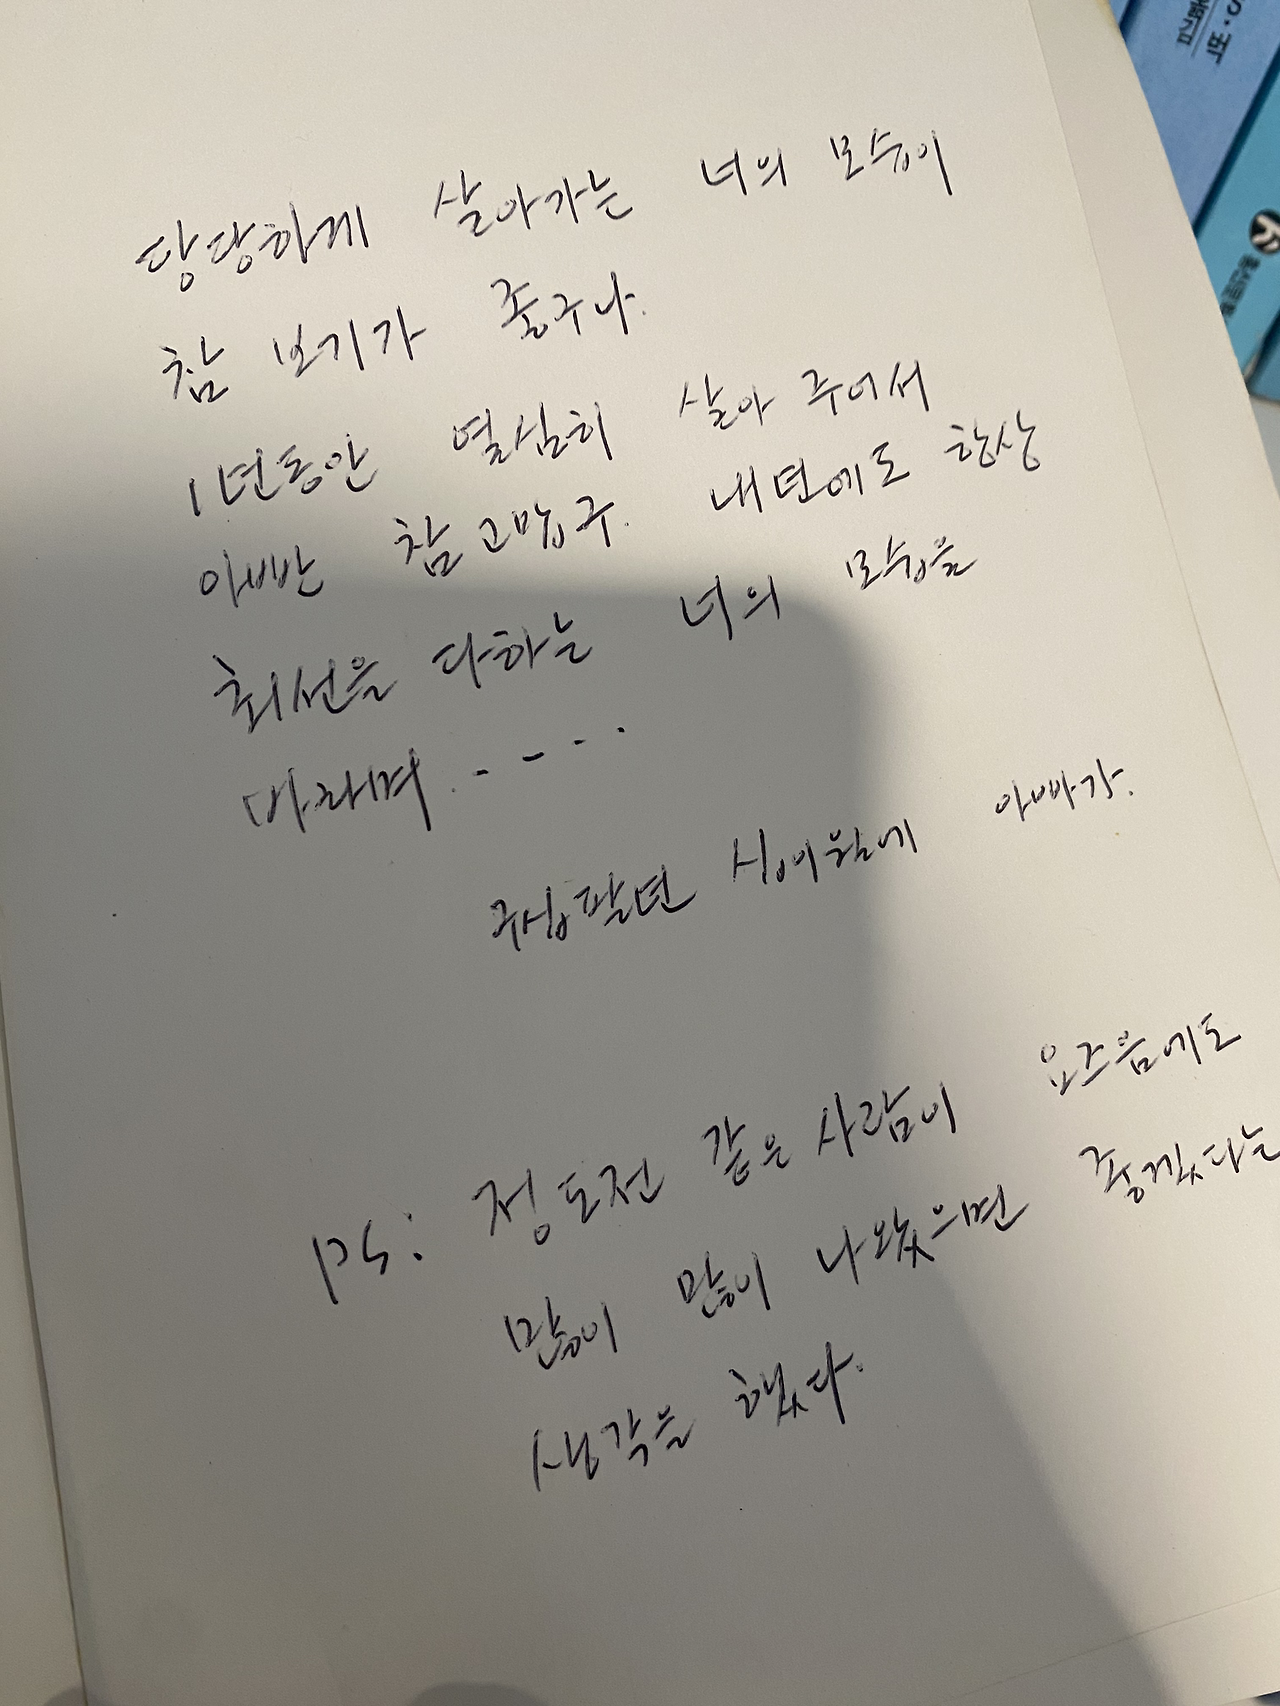 당당하게 살아가는 너의 모습이
참 보기가 좋구나.
1년동안 열심히 살아 주어서
아빤 참 고맙구. 내년에도 항상
최선을 다하는 너의 모습을
바라며.....
구십팔년 십이월에 아빠가.
PS: 정도전 같은 사람이 요즈음에도
많이 많이 나왔으면 좋겠다는
생각을 했다.